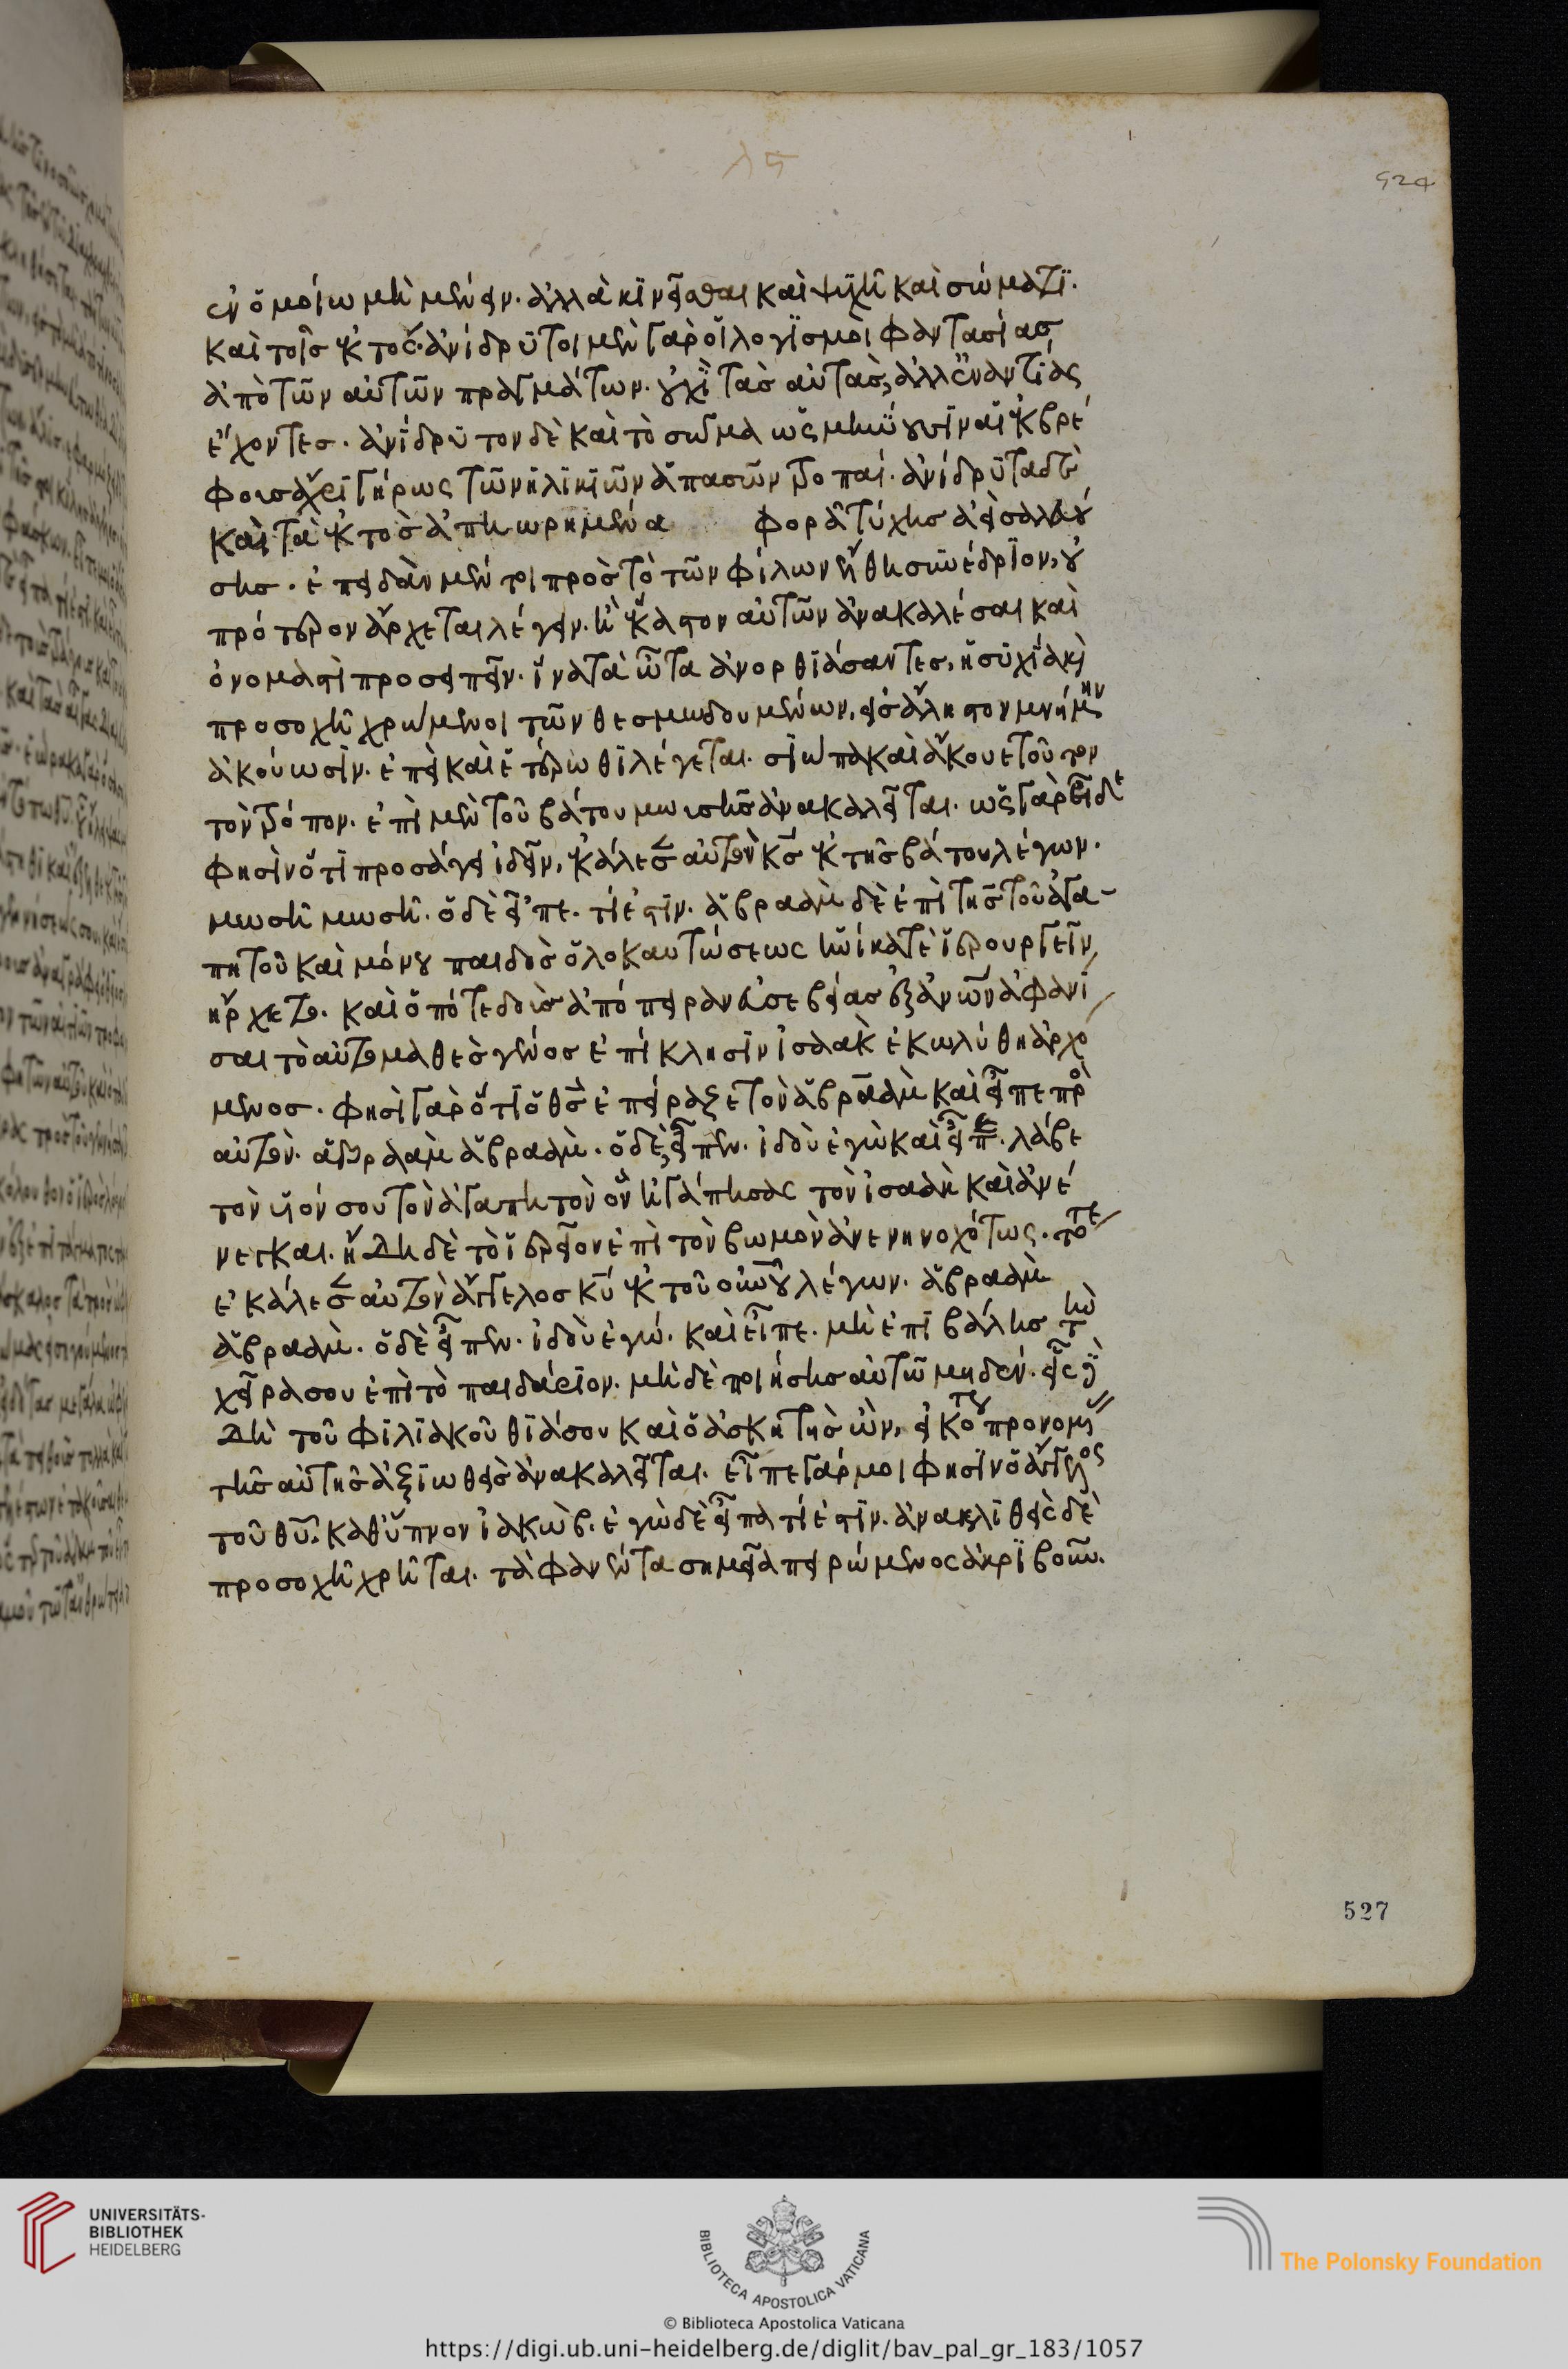 ἐν ὁμοίω μὴ μένειν. ἀλλὰ κϊνεῖσθαι καὶ ψϋχῆ καὶ σώματϊ.
καὶ τοῖς ἐκτός. ἀνίδρϋτοι μὲν γὰρ οἱ λογϊσμοὶ φαντασίας,
ἀπὸ τῶν αὐτῶν πραγμάτων. οὐχὶ τὰς αὐτὰς, ἀλλ' ἐναντίας
ἔχοντες. ἀνίδρϋτον δὲ καὶ τὸ σῶμα ὡς μηνύουσϊν αἱ ἐκ βρέ
φους ἄχρι γήρως τῶν ἡλϊκϊῶν ἁπασῶν τροπαί. ἀνίδρϋτα δὲ
καὶ τὰ ἐκτὸς ἀπηωρημένα φορᾶ τύχης ἀεὶ σαλευού
σης. ἐπειδὰν μέντοι πρὸς τὸ τῶν φίλων ἔλθη συνέδρϊον, οὐ
πρότερον ἄρχεται λέγειν. ἢ ἕκαστον αὐτῶν ἀνακαλέσαι καὶ
ὀνομαστὶ προσειπεῖν. ἵνα τὰ ὦτα ἀνορθϊάσαντες, ἡσϋχία καὶ
προσοχῆ χρώμενοι τῶν θεσμωδουμένων, εἰς ἄληστον μνήμην
ἀκούωσϊν. ἐπεὶ καὶ ἑτέρωθϊ λέγεται. σϊώπα καὶ ἄκουε τοῦτον
τὸν τρόπον. ἐπὶ μὲν τοῦ βάτου μωϋσῆς ἀνακαλεῖται. ὡς γὰρ εἶδε
φησὶν ὅτι προσάγει ἰδεῖν, ἐκάλεσεν αὐτὸν κς ἐκ τῆς βάτου λέγων.
μωσῆ μωσῆ. ὁ δὲ εἶπε. τί ἐστϊν. ἀβραὰμ δὲ ἐπὶ τῆς τοῦ ἀγα-
πητοῦ καὶ μόνου παιδὸς ὁλοκαυτώσεως ἡνίκα τὲ ἱερουργεῖν,
ἤρχετο. καὶ ὁπότε δοὺς ἀπόπειραν εὐσεβείας ἐξ ἀνων ἀφανί
σαι τὸ αὐτομαθὲς γένος ἐπίκλησϊν ἰσαὰκ ἐκωλύθη ἀρχό
μενος. φησὶ γὰρ ὅτϊ ὁ θς ἐπείραξε τὸν ἀβραὰμ καὶ εἶπε πρὸς
αὐτὸν. ἀβραὰμ ἀβραὰμ. ὁ δὲ, εἶπεν. ἰδοὺ ἐγὼ καὶ εἶπε. λάβε
τὸν υἱόν σου τὸν ἀγαπητὸν ὃν ἠγάπησας τὸν ἰσαὰκ καὶ ἀνέ
νεγκαι. ἤδη δὲ τὸ ἱερεῖον ἐπὶ τὸν βωμὸν ἀνενηνοχότως. τότε
ἐκάλεσεν αὐτὸν ἄγγελος κυ ἐκ τοῦ ουνου λέγων. ἀβραὰμ
ἀβραὰμ. ὁ δὲ εἶπεν. ἰδοὺ ἐγώ. καὶ εἶπε. μὴ ἐπϊβάλης τὴν
χεῖρα σου ἐπὶ τὸ παιδάριον. μὴ δὲ ποιήσης αὐτῶ μηδέν. εἷς
δὴ τοῦ φϊλϊακοῦ θϊάσου καὶ ὁ ἀσκητὴς ὢν, εἰκότως προνομίας
τῆς αὐτῆς ἀξϊωθεὶς ἀνακαλεῖται. εἶπε γάρ μοι φησϊν ὁ ἄγγελος
τοῦ θυ. καθ' ὕπνον ἰακὼβ. ἐγὼ δὲ εἶπα τί ἐστϊν. ἀνακλϊθεὶς δὲ
προσοχῆ χρῆται. τὰ φανέντα σημεῖα πειρώμενος ἀκρϊβοῦν.
524
527
UNIVERSITÄTS-
BIBLIOTHEK
HEIDELBERG
BIBLIOTECA APOSTOLICA VATICANA
The Polonsky Foundation
© Biblioteca Apostolica Vaticana
https://digi.ub.uni-heidelberg.de/diglit/bav_pal_gr_183/1057